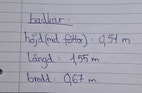 badkar
höjd (med fötter): 0,59 m
Längd: 1,55 m
bredd: 0,67 m